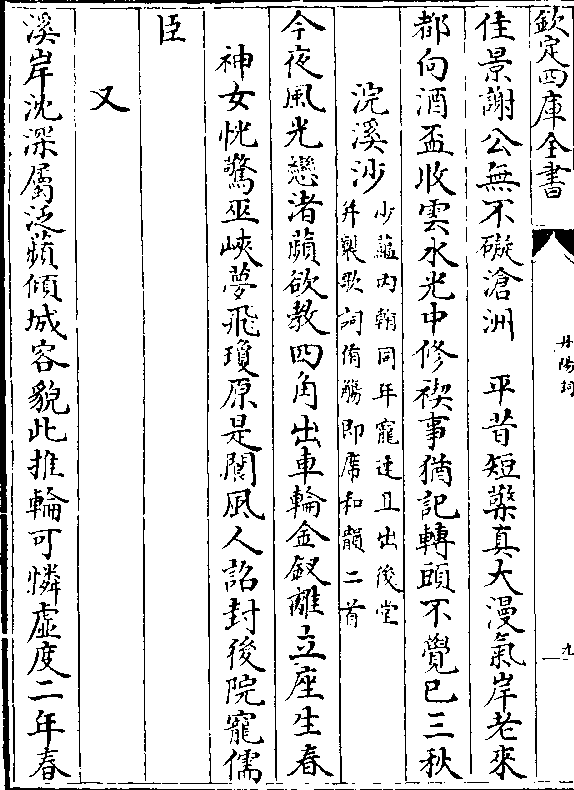 欽定四庫全書
丹陽詞
九
佳景謝公無不礙滄洲　平昔短檠真大漫氣岸老來
都向酒盃收雲水光中修禊事猶記轉頭不覺已三秋
浣溪沙
少蘊內翰同年寵速且出後堂
并製歌詞侑觴即席和韻二首
今夜風光戀渚蘋欲教四角出車輪金釵離立座生春
神女恍驚巫峽夢飛瓊原是閬風人詔封後院寵儒
臣
又
溪岸沈深屬泛蘋傾城容貌此推輪可憐虛度二年春